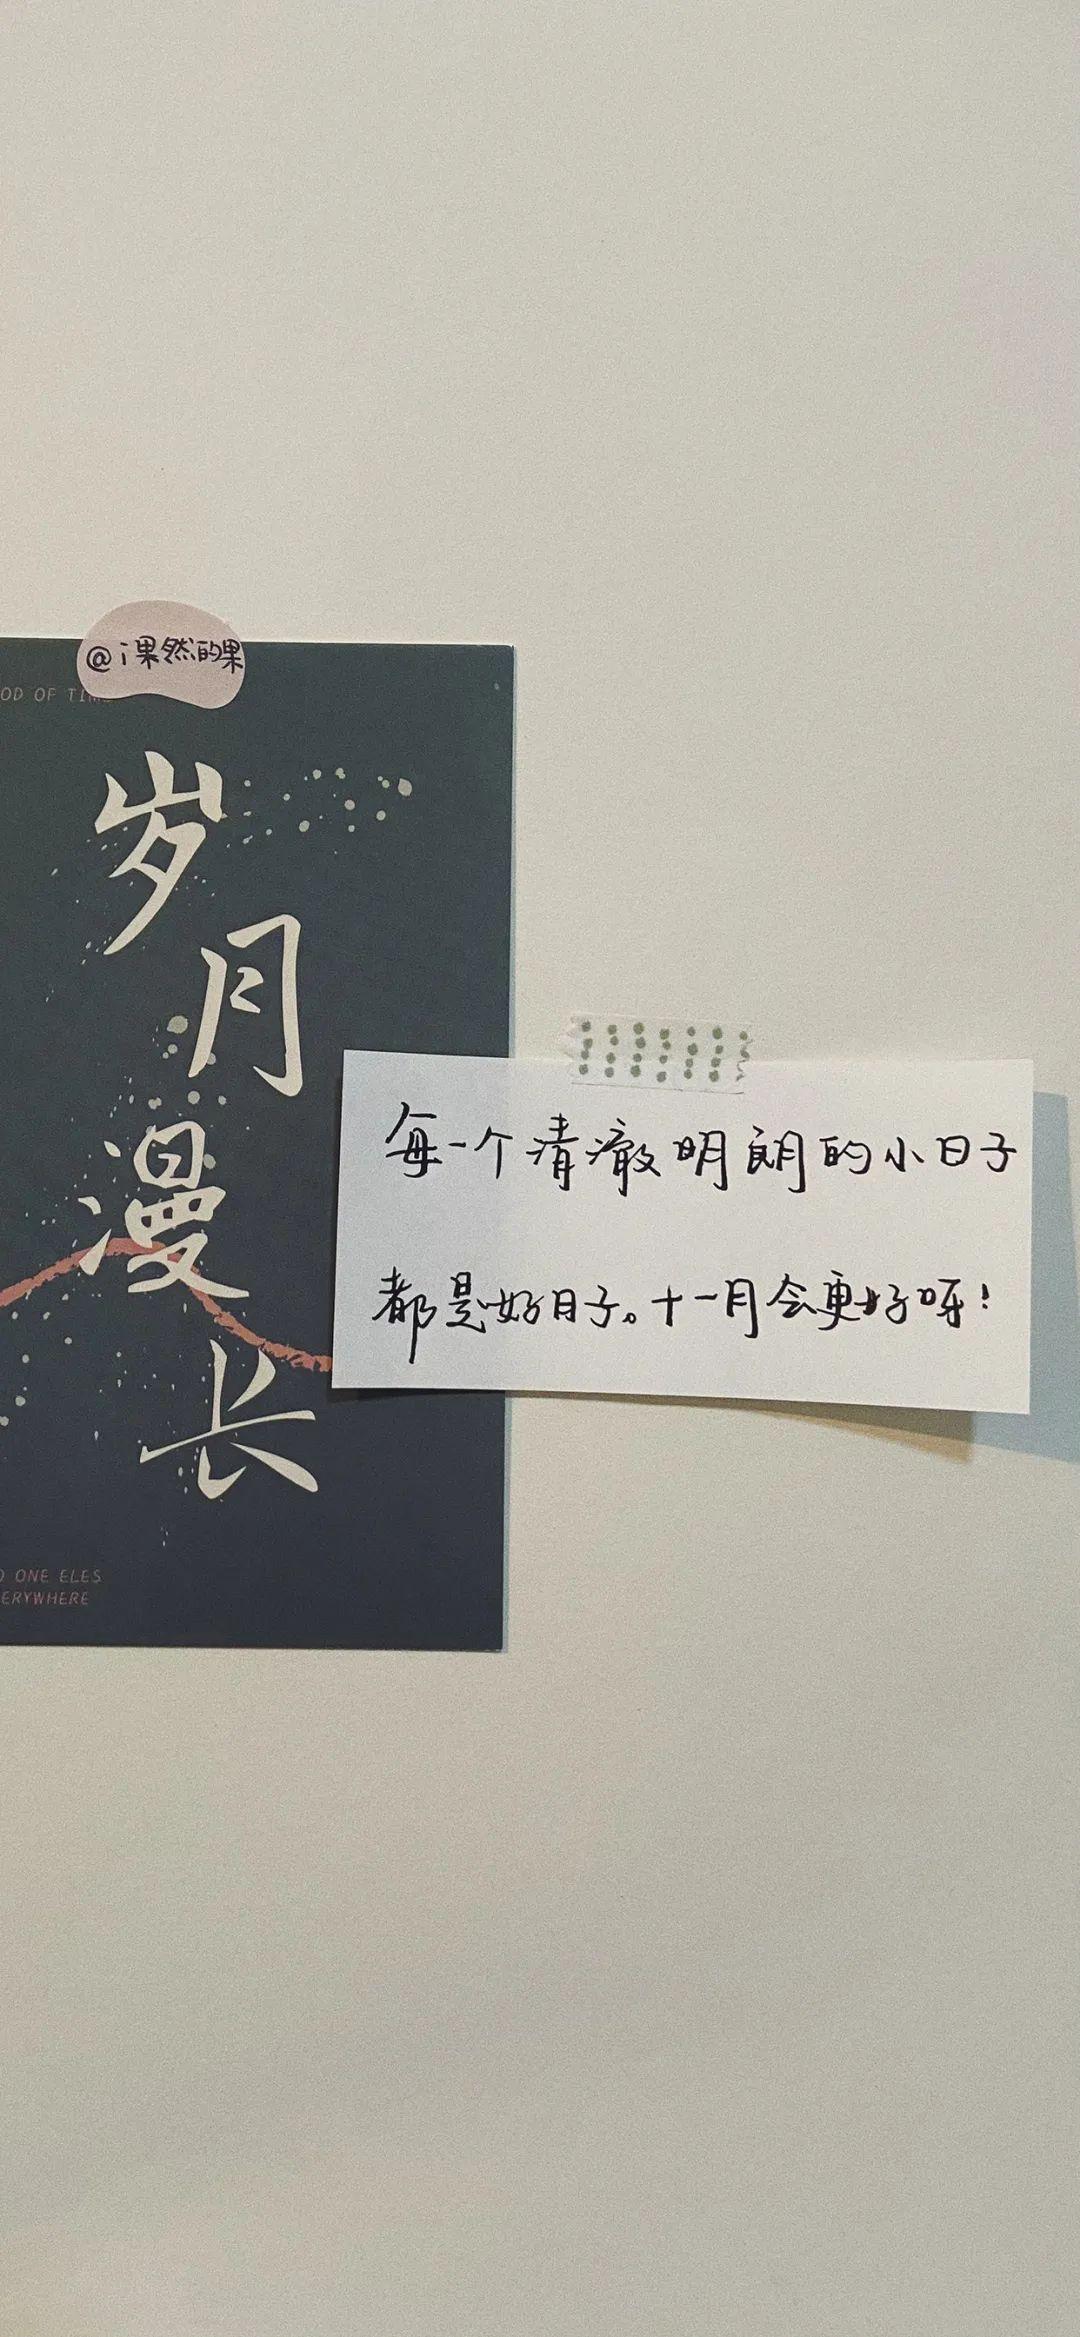 @i果然的果
OD OF TIME
岁
月
漫
长
每一个清澈明朗的小日子
都是好日子。十一月会更好呀！
O ONE ELES
ERYWHERE